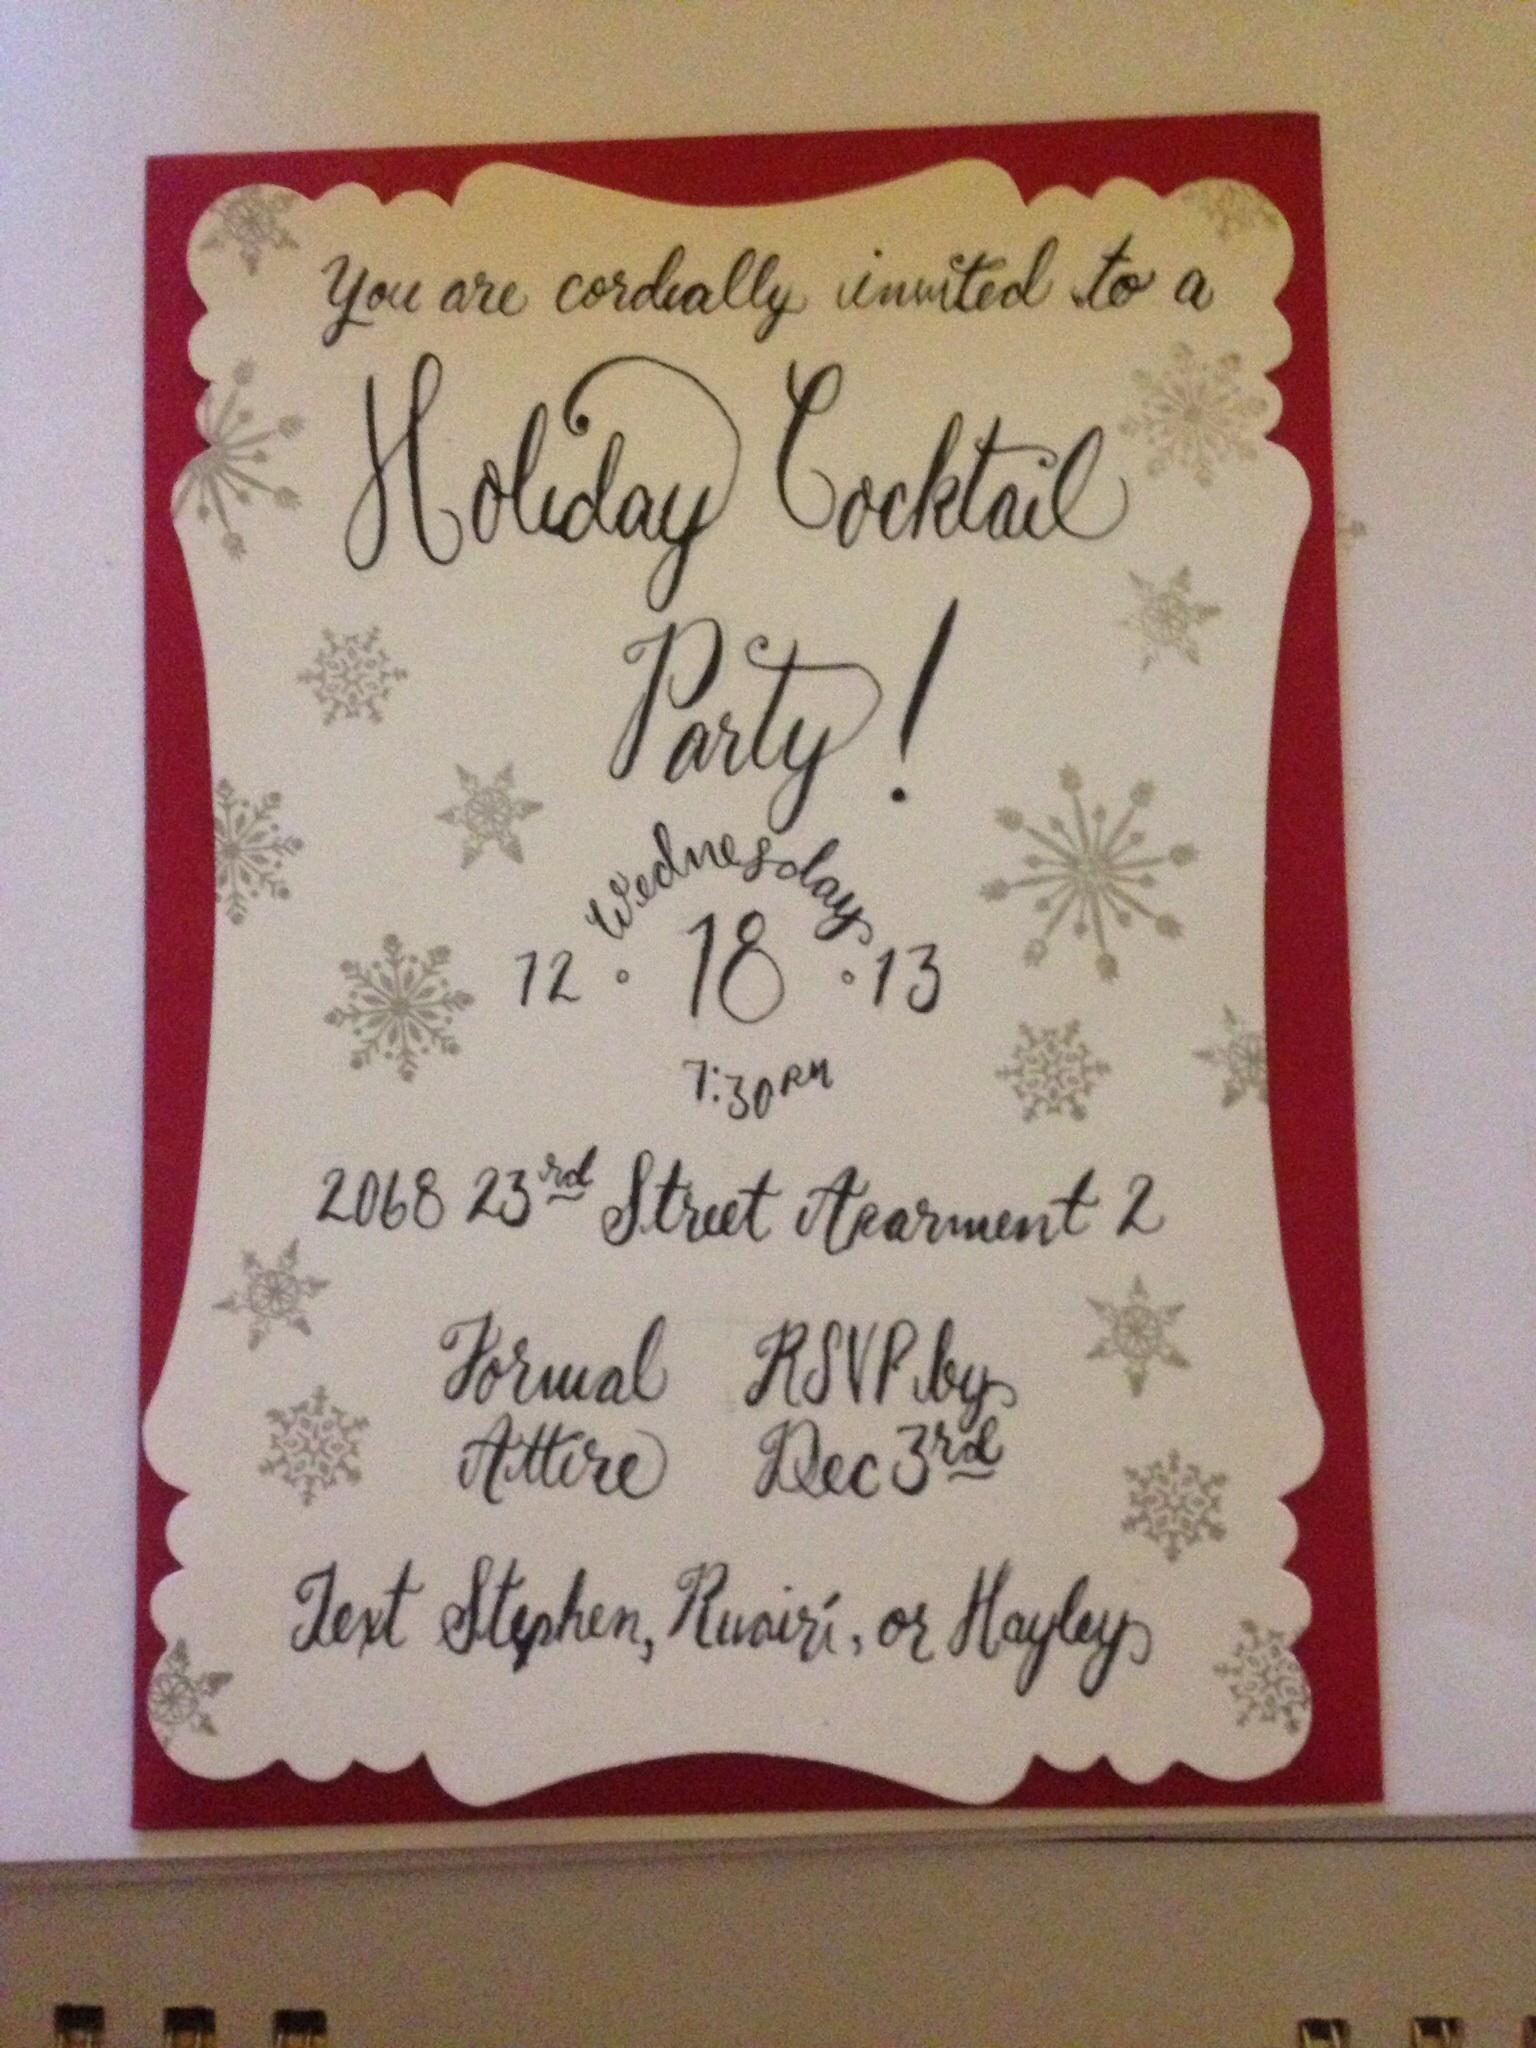 You are cordially invited to a
Holiday Cocktail
Party!
Wednesday
12 · 18 · 13
7:30PM
2068 23rd Street Aparment 2
Formal
Attire
RSVP by
Dec 3rd
Text Stephen, Ruairí, or Hayley